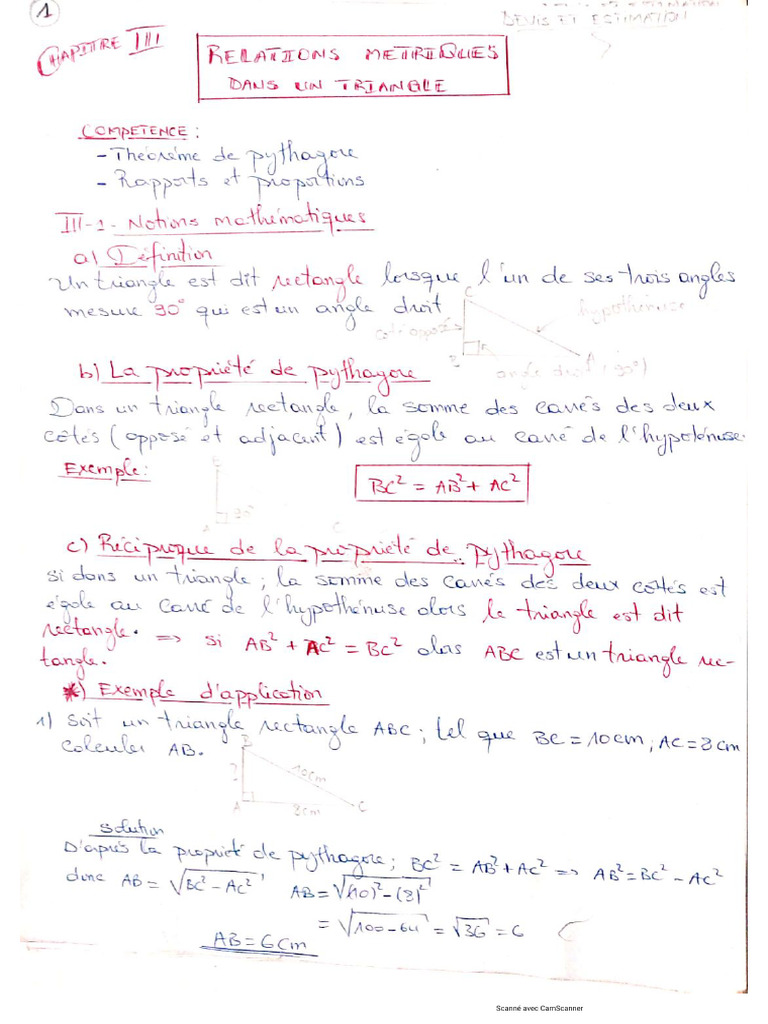 1
DEVIS ET ESTIMATION
CHAPITRE III
RELATIONS METRIQUES
DANS UN TRIANGLE
COMPETENCE :
- Théorème de pythagore
- Rapports et proportions
III-1- Notions mathématiques
a) Définition
Un triangle est dit rectangle lorsque l'un de ses trois angles
mesure 90° qui est un angle droit
C
hypothénuse
coté opposé
B
A
angle droit (90°)
b) La propriété de pythagore
Dans un triangle rectangle, la somme des carrés des deux
côtés (opposé et adjacent) est égale au carré de l'hypoténuse.
Exemple:
BC² = AB² + AC²
B
A
90°
C
c) Réciproque de la propriété de pythagore
si dans un triangle; la somme des carrés des deux cotés est
égale au carré de l'hypothénuse alors le triangle est dit
rectangle. => si AB² + AC² = BC² alors ABC est un triangle rec-
tangle.
*) Exemple d'application
1) Soit un triangle rectangle ABC; tel que BC = 10cm; AC = 8cm
Calculer AB.
B
?
10cm
A
8cm
C
Solution
D'après la propriété de pythagore; BC² = AB² + AC² => AB² = BC² - AC²
donc AB = √BC² - AC² AB = √(10)² - (8)²
= √100 - 64 = √36 = 6
AB = 6cm
Scanné avec CamScanner